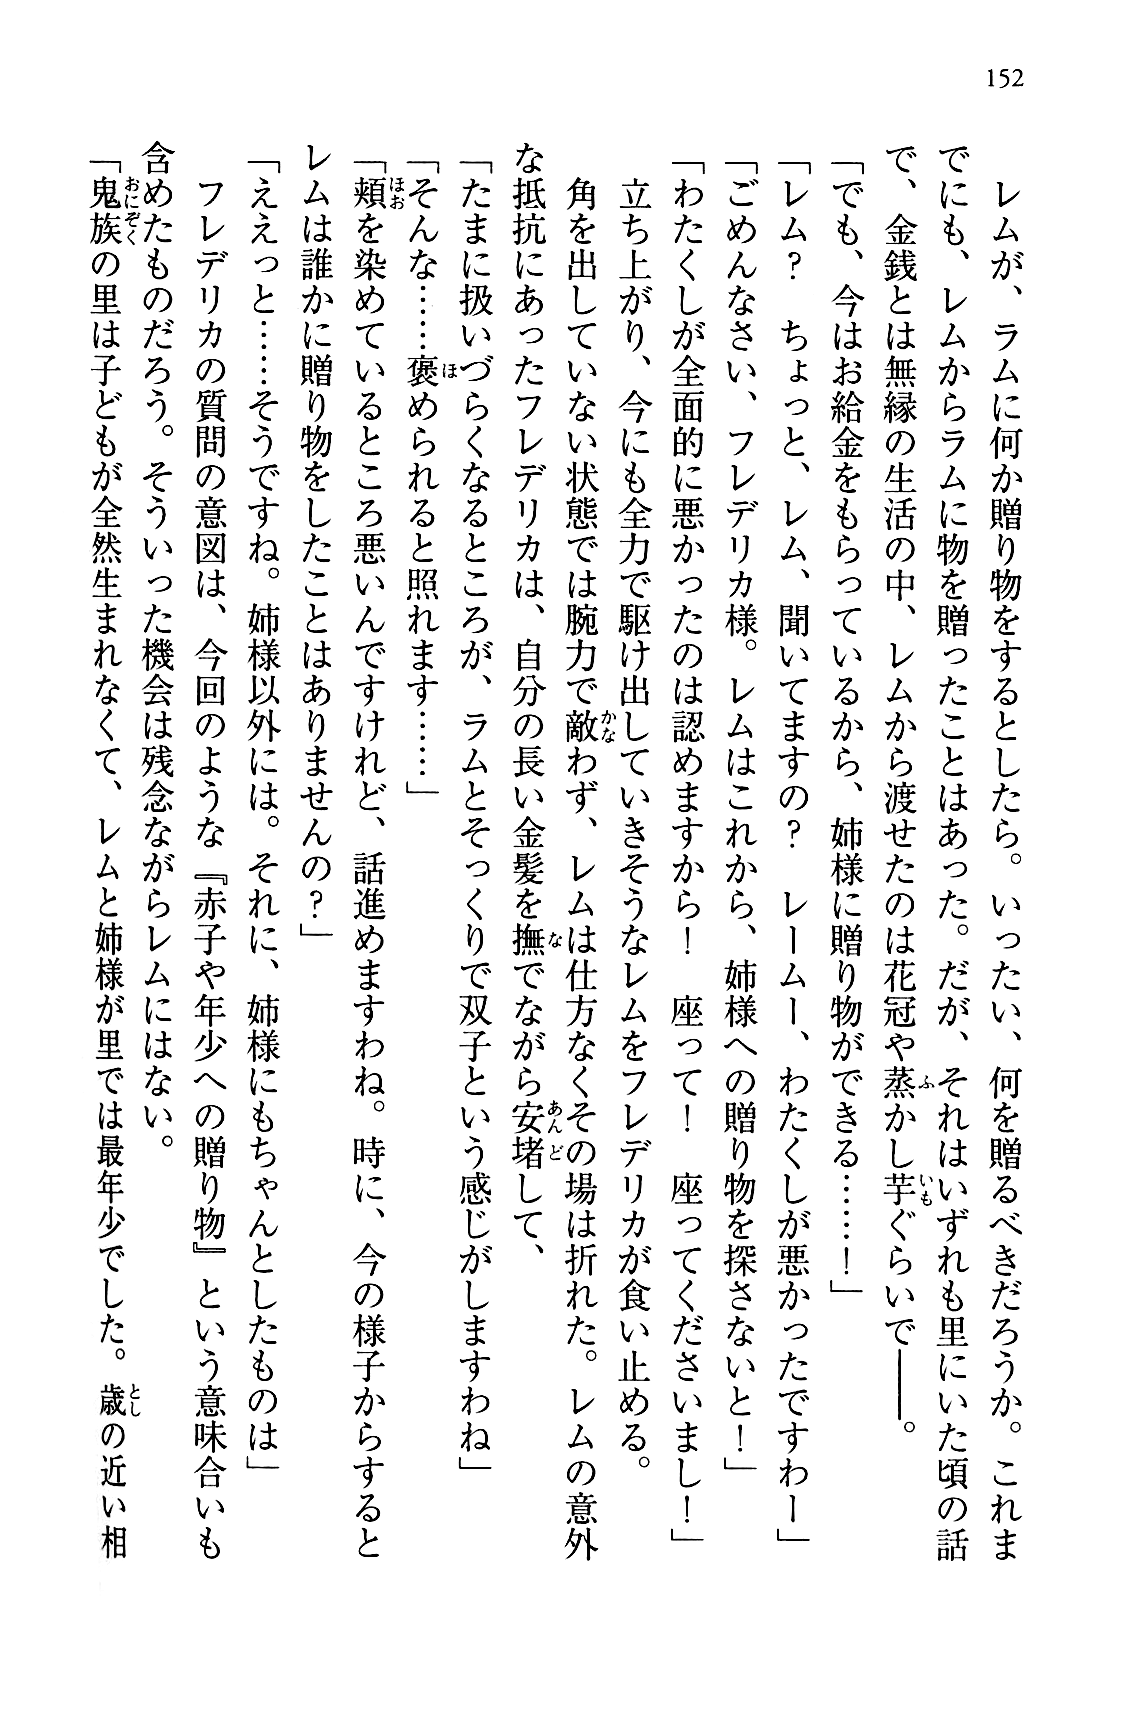 152
　レムが、ラムに何か贈り物をするとしたら。いったい、何を贈るべきだろうか。これま
でにも、レムからラムに物を贈ったことはあった。だが、それはいずれも里にいた頃の話
で、金銭とは無縁の生活の中、レムから渡せたのは花冠や蒸かし芋ぐらいで――。
「でも、今はお給金をもらっているから、姉様に贈り物ができる……！」
「レム？　ちょっと、レム、聞いてますの？　レームー、わたくしが悪かったですわー」
「ごめんなさい、フレデリカ様。レムはこれから、姉様への贈り物を探さないと！」
「わたくしが全面的に悪かったのは認めますから！　座って！　座ってくださいまし！」
　立ち上がり、今にも全力で駆け出していきそうなレムをフレデリカが食い止める。
　角を出していない状態では腕力で敵わず、レムは仕方なくその場は折れた。レムの意外
な抵抗にあったフレデリカは、自分の長い金髪を撫でながら安堵して、
「たまに扱いづらくなるところが、ラムとそっくりで双子という感じがしますわね」
「そんな……褒められると照れます……」
「頬を染めているところ悪いんですけれど、話進めますわね。時に、今の様子からすると
レムは誰かに贈り物をしたことはありませんの？」
「ええっと……そうですね。姉様以外には。それに、姉様にもちゃんとしたものは」
　フレデリカの質問の意図は、今回のような『赤子や年少への贈り物』という意味合いも
含めたものだろう。そういった機会は残念ながらレムにはない。
「鬼族の里は子どもが全然生まれなくて、レムと姉様が里では最年少でした。歳の近い相